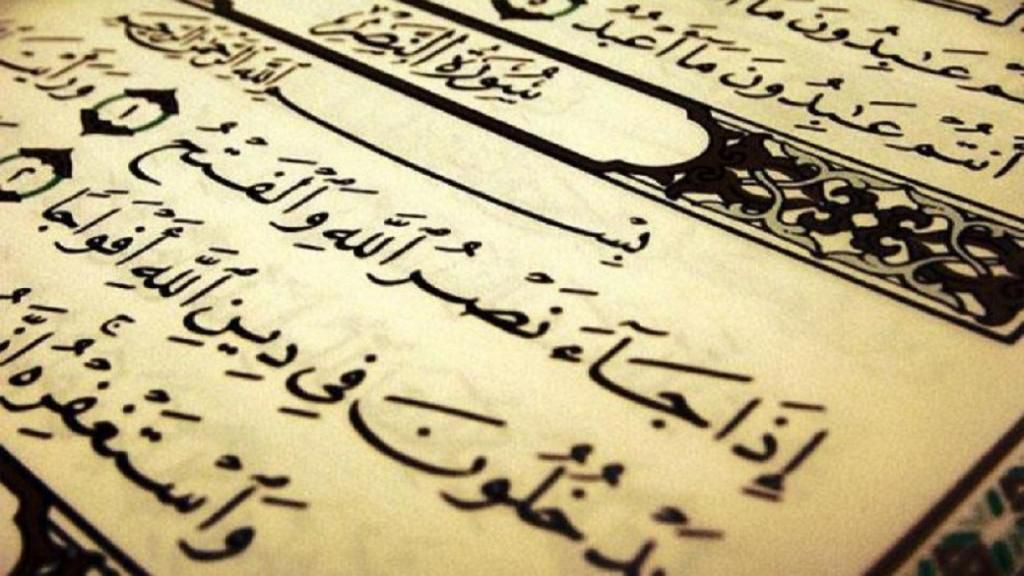 عَٰبِدُونَ مَآ
أَنتُمْ عَٰبِدُونَ مَآ أَعْبُدُ ٥
سُورَةُ النَّصْرِ
بِسْمِ ٱللَّهِ ٱلرَّحْمَٰنِ ٱلرَّحِيمِ
إِذَا جَآءَ نَصْرُ ٱللَّهِ وَٱلْفَتْحُ ١ وَرَأَيْتَ
يَدْخُلُونَ فِي دِينِ ٱللَّهِ أَفْوَاجًا ٢
وَٱسْتَغْفِرْهُ ۚ إِنَّهُۥ